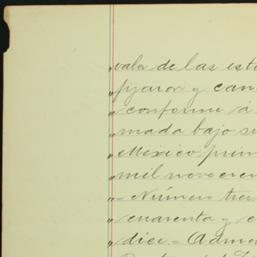 „valor de las est
„fijaron y can
„conforme á
„mada bajo su
„Mexico prim
„mil novecien
„= Número tre
„cuarenta y c
„dice.= Adm